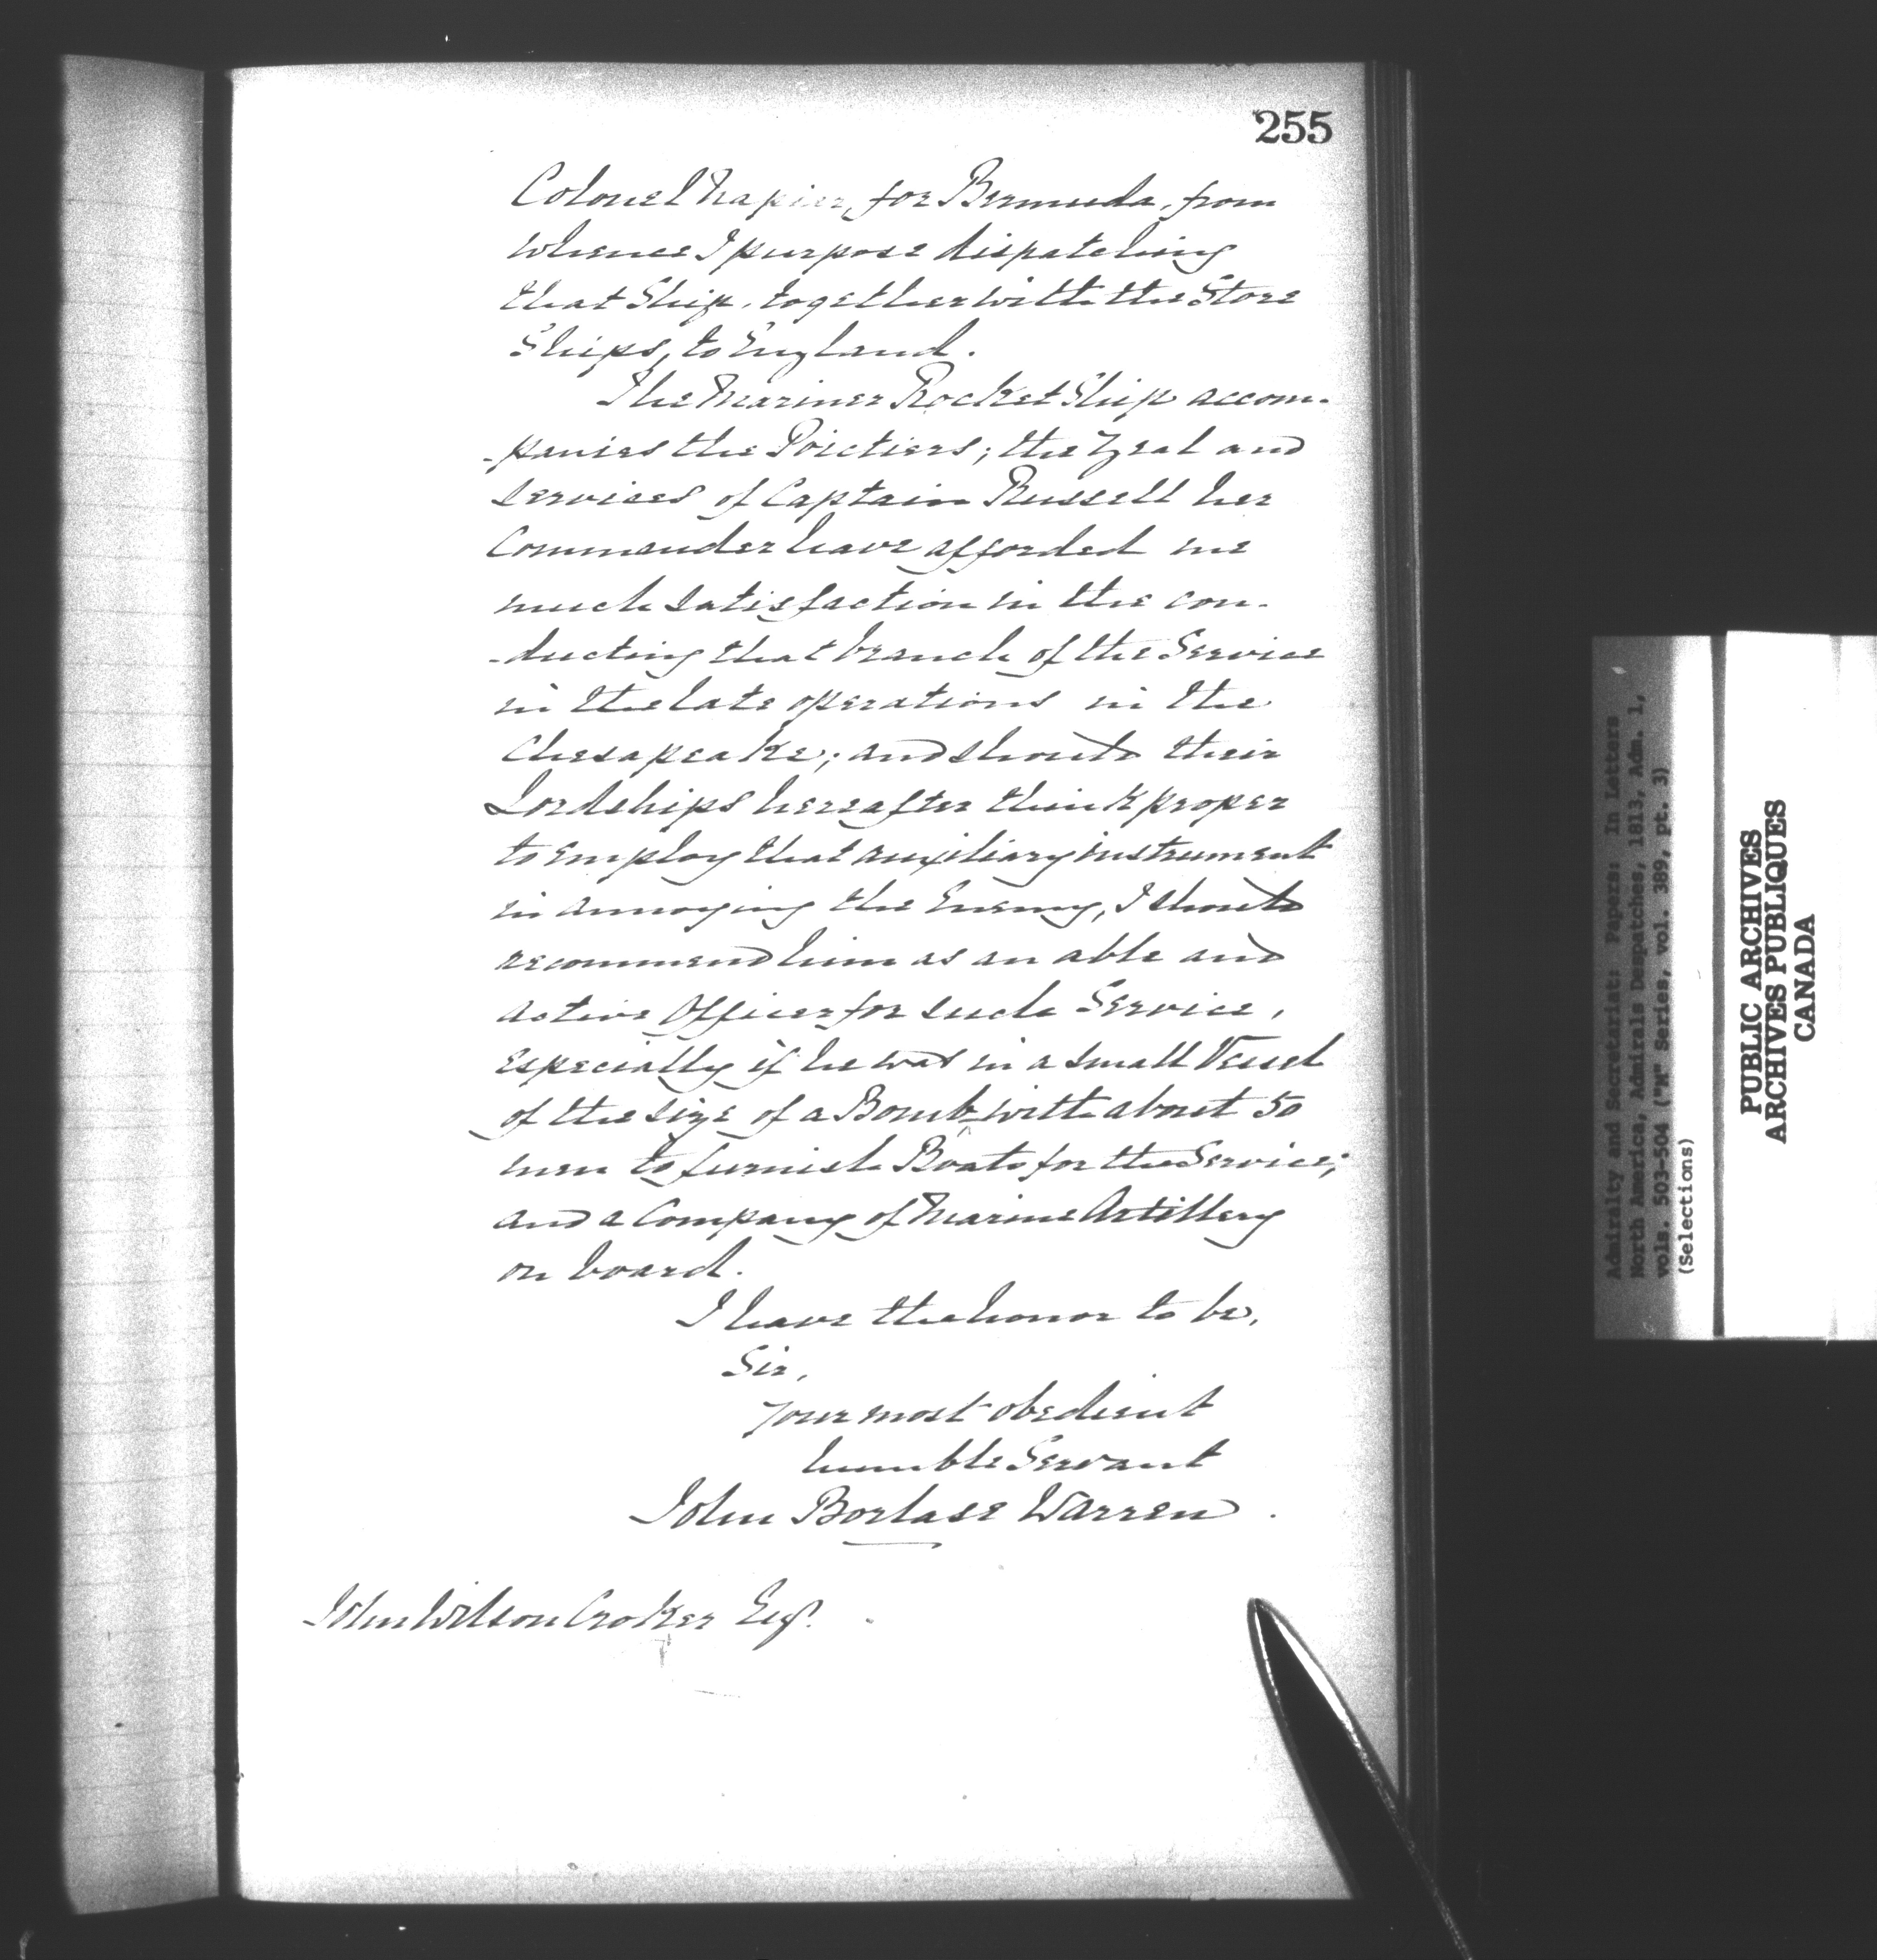 255
Colonel Napier, for Bermuda, from
whence I purpose dispatching
that Ship, together with the Store
Ships, to England.
The Mariner Rocket Ship accom-
-panies the Poictiers; the Zeal and
services of Captain Russell her
Commander have afforded me
much satisfaction in the con-
-ducting that branch of the Service
in the late operations in the
Chesapeake; and should their
Lordships hereafter think proper
to employ that auxiliary instrument
in annoying the Enemy, I should
recommend him as an able and
active Officer for such Service,
especially if he was in a small Vessel
of the size of a Bomb with about 50
men to furnish Boats for the Service;
and a Company of Marine Artillery
on board.
I have the honor to be,
Sir,
Your most obedient
humble Servant
John Borlase Warren.
John Wilson Croker Esqr.
Admiralty and Secretariat: Papers: In Letters
North America, Admirals Despatches, 1813, Adm. 1,
vols. 503-504 ("M" Series, vol. 389, pt. 3)
(Selections)
PUBLIC ARCHIVES
ARCHIVES PUBLIQUES
CANADA